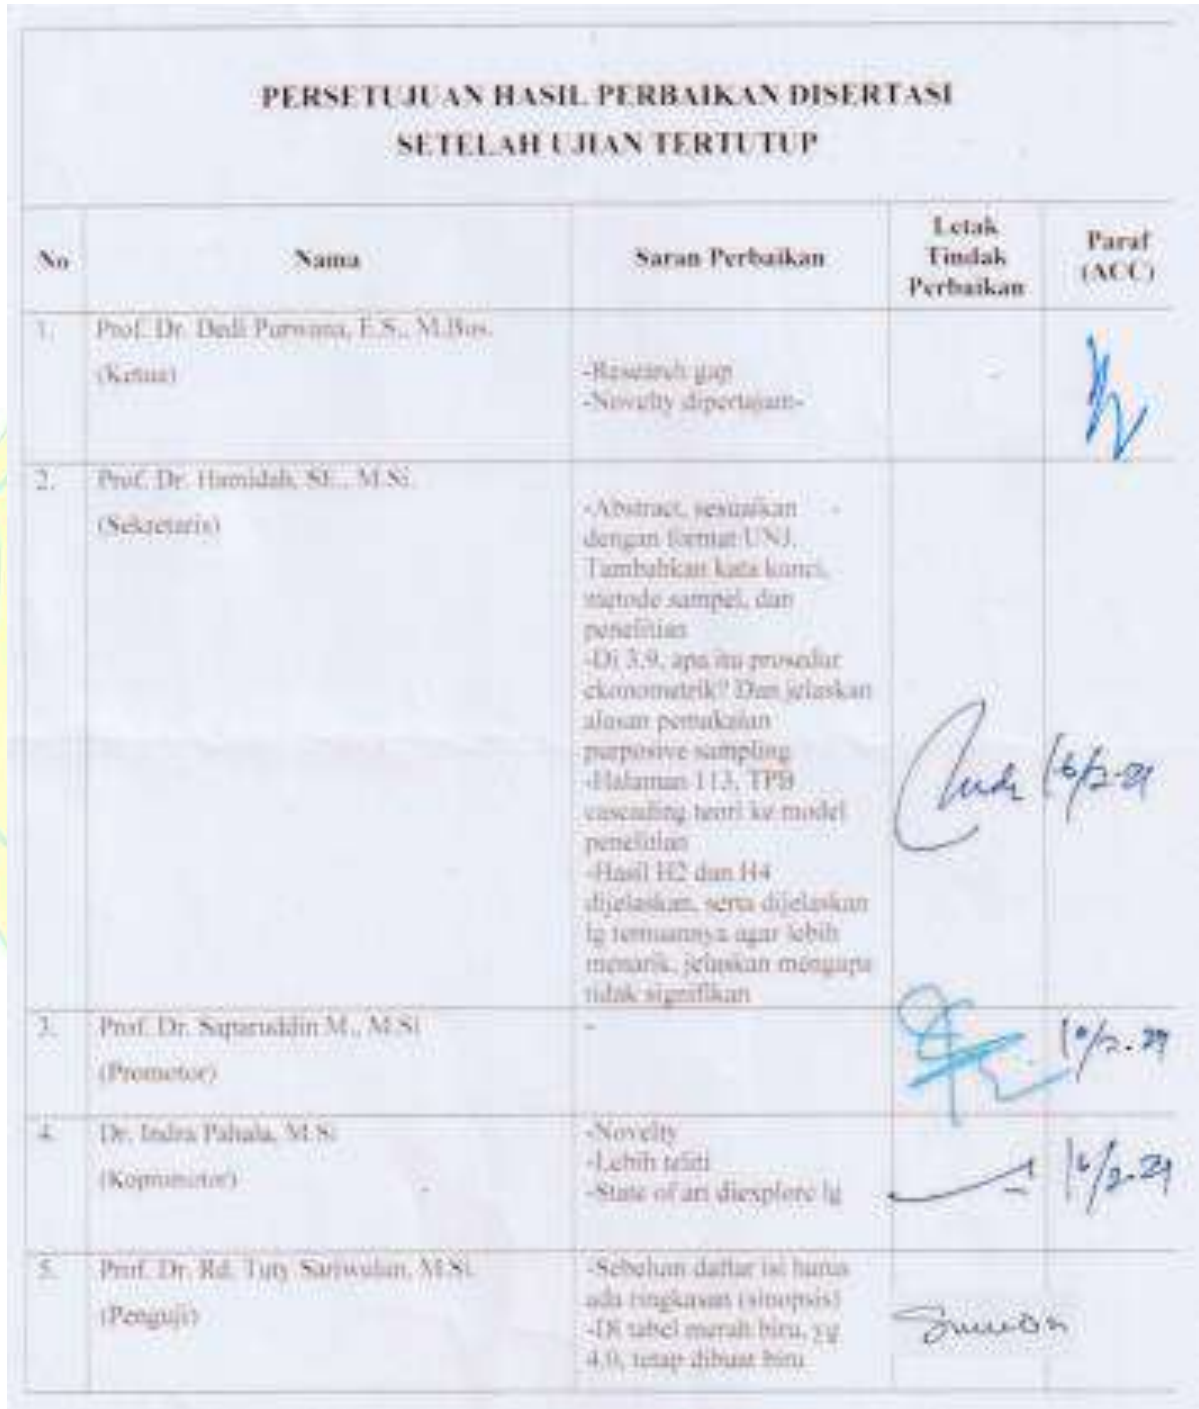 PERSETUJUAN HASIL PERBAIKAN DISERTASI
SETELAH UJIAN TERTUTUP
No
Nama
Saran Perbaikan
Letak
Tindak
Perbaikan
Paraf
(ACC)
1.
Prof. Dr. Dedi Purwana, E.S., M.Bus.
(Ketua)
-Research gap
-Novelty dipertajam-
-
2.
Prof. Dr. Hamidah, SE., M.Si.
(Sekretaris)
-Abstract, sesuaikan -
dengan format UNJ.
Tambahkan kata kunci,
metode sampel, dan
penelitian
-Di 3.9, apa itu prosedur
ekonometrik? Dan jelaskan
alasan pemakaian
purposive sampling
-Halaman 113, TPB
cascading teori ke model
penelitian
-Hasil H2 dan H4
dijelaskan, serta dijelaskan
lg temuannya agar lebih
menarik, jelaskan mengapa
tidak signifikan
3.
Prof. Dr. Saparuddin M., M.Si
(Promotor)
-
4.
Dr. Indra Pahala, M.Si
(Kopromotor)
-Novelty
-Lebih teliti
-State of art diexplore lg
5.
Prof. Dr. Rd. Tuty Sariwulan, M.Si.
(Penguji)
-Sebelum daftar isi harus
ada ringkasan (sinopsis)
tabel merah biru, yg
4.0, tetap dibuat biru